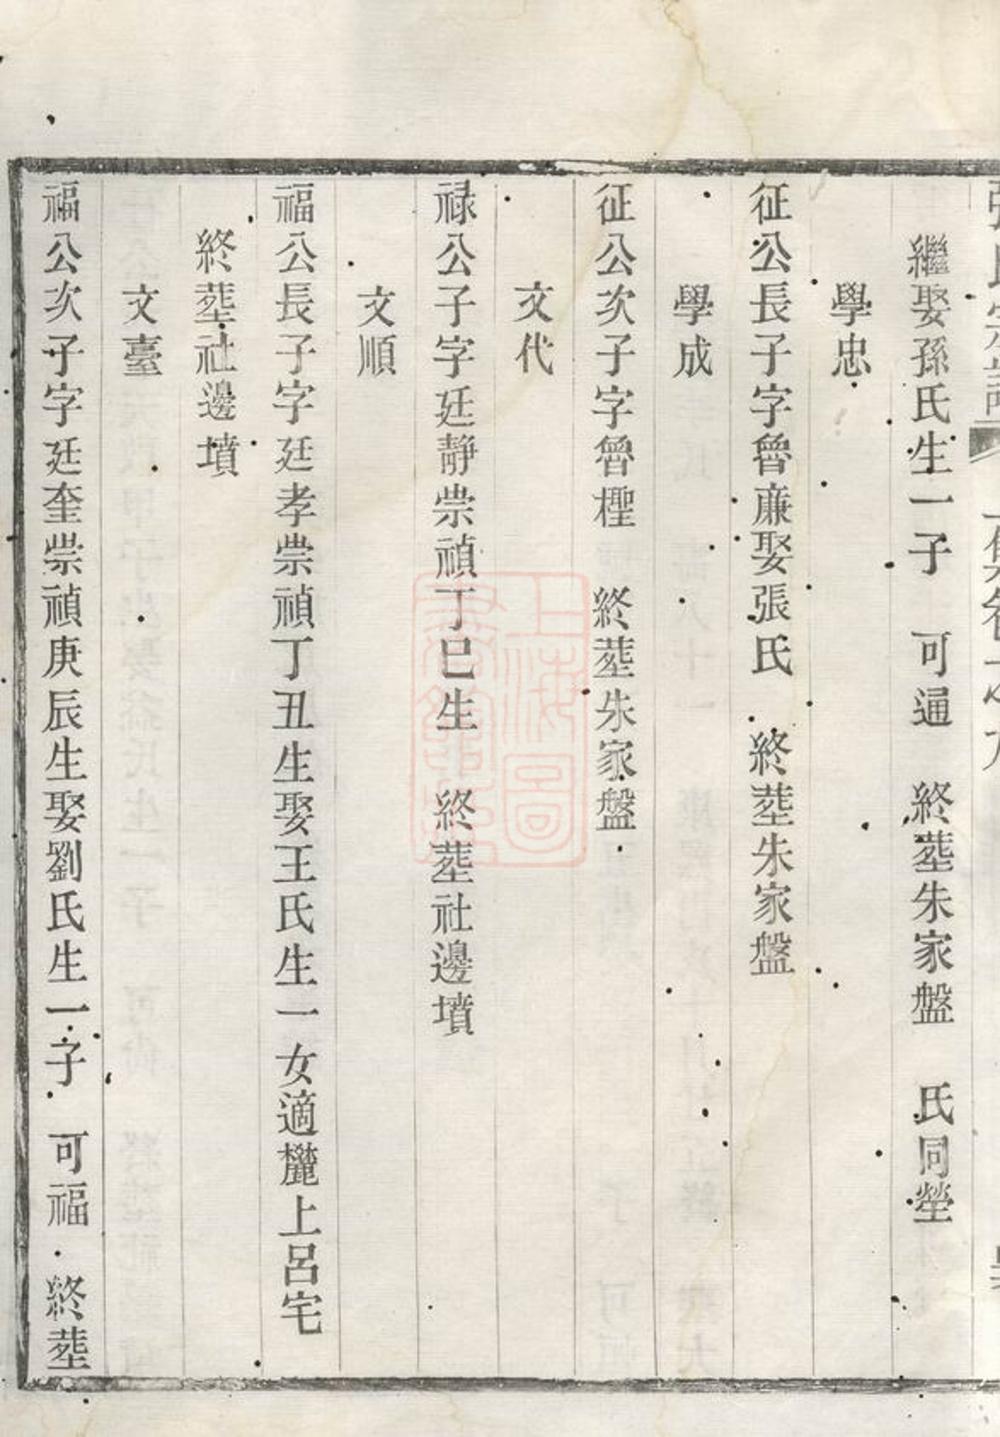 繼娶孫氏生一子　可通　終塟朱家盤　氏同塋
學忠
征公長子字魯廉娶張氏　終塟朱家盤
學成
征公次子字魯檉　終塟朱家盤
文代
禄公子字廷靜祟禎丁巳生　終塟社邊墳
文順
福公長子字廷孝祟禎丁丑生娶王氏生一女適麓上呂宅
終塟社邊墳
文臺
福公次子字廷奎祟禎庚辰生娶劉氏生一子　可福　終塟
上海圖